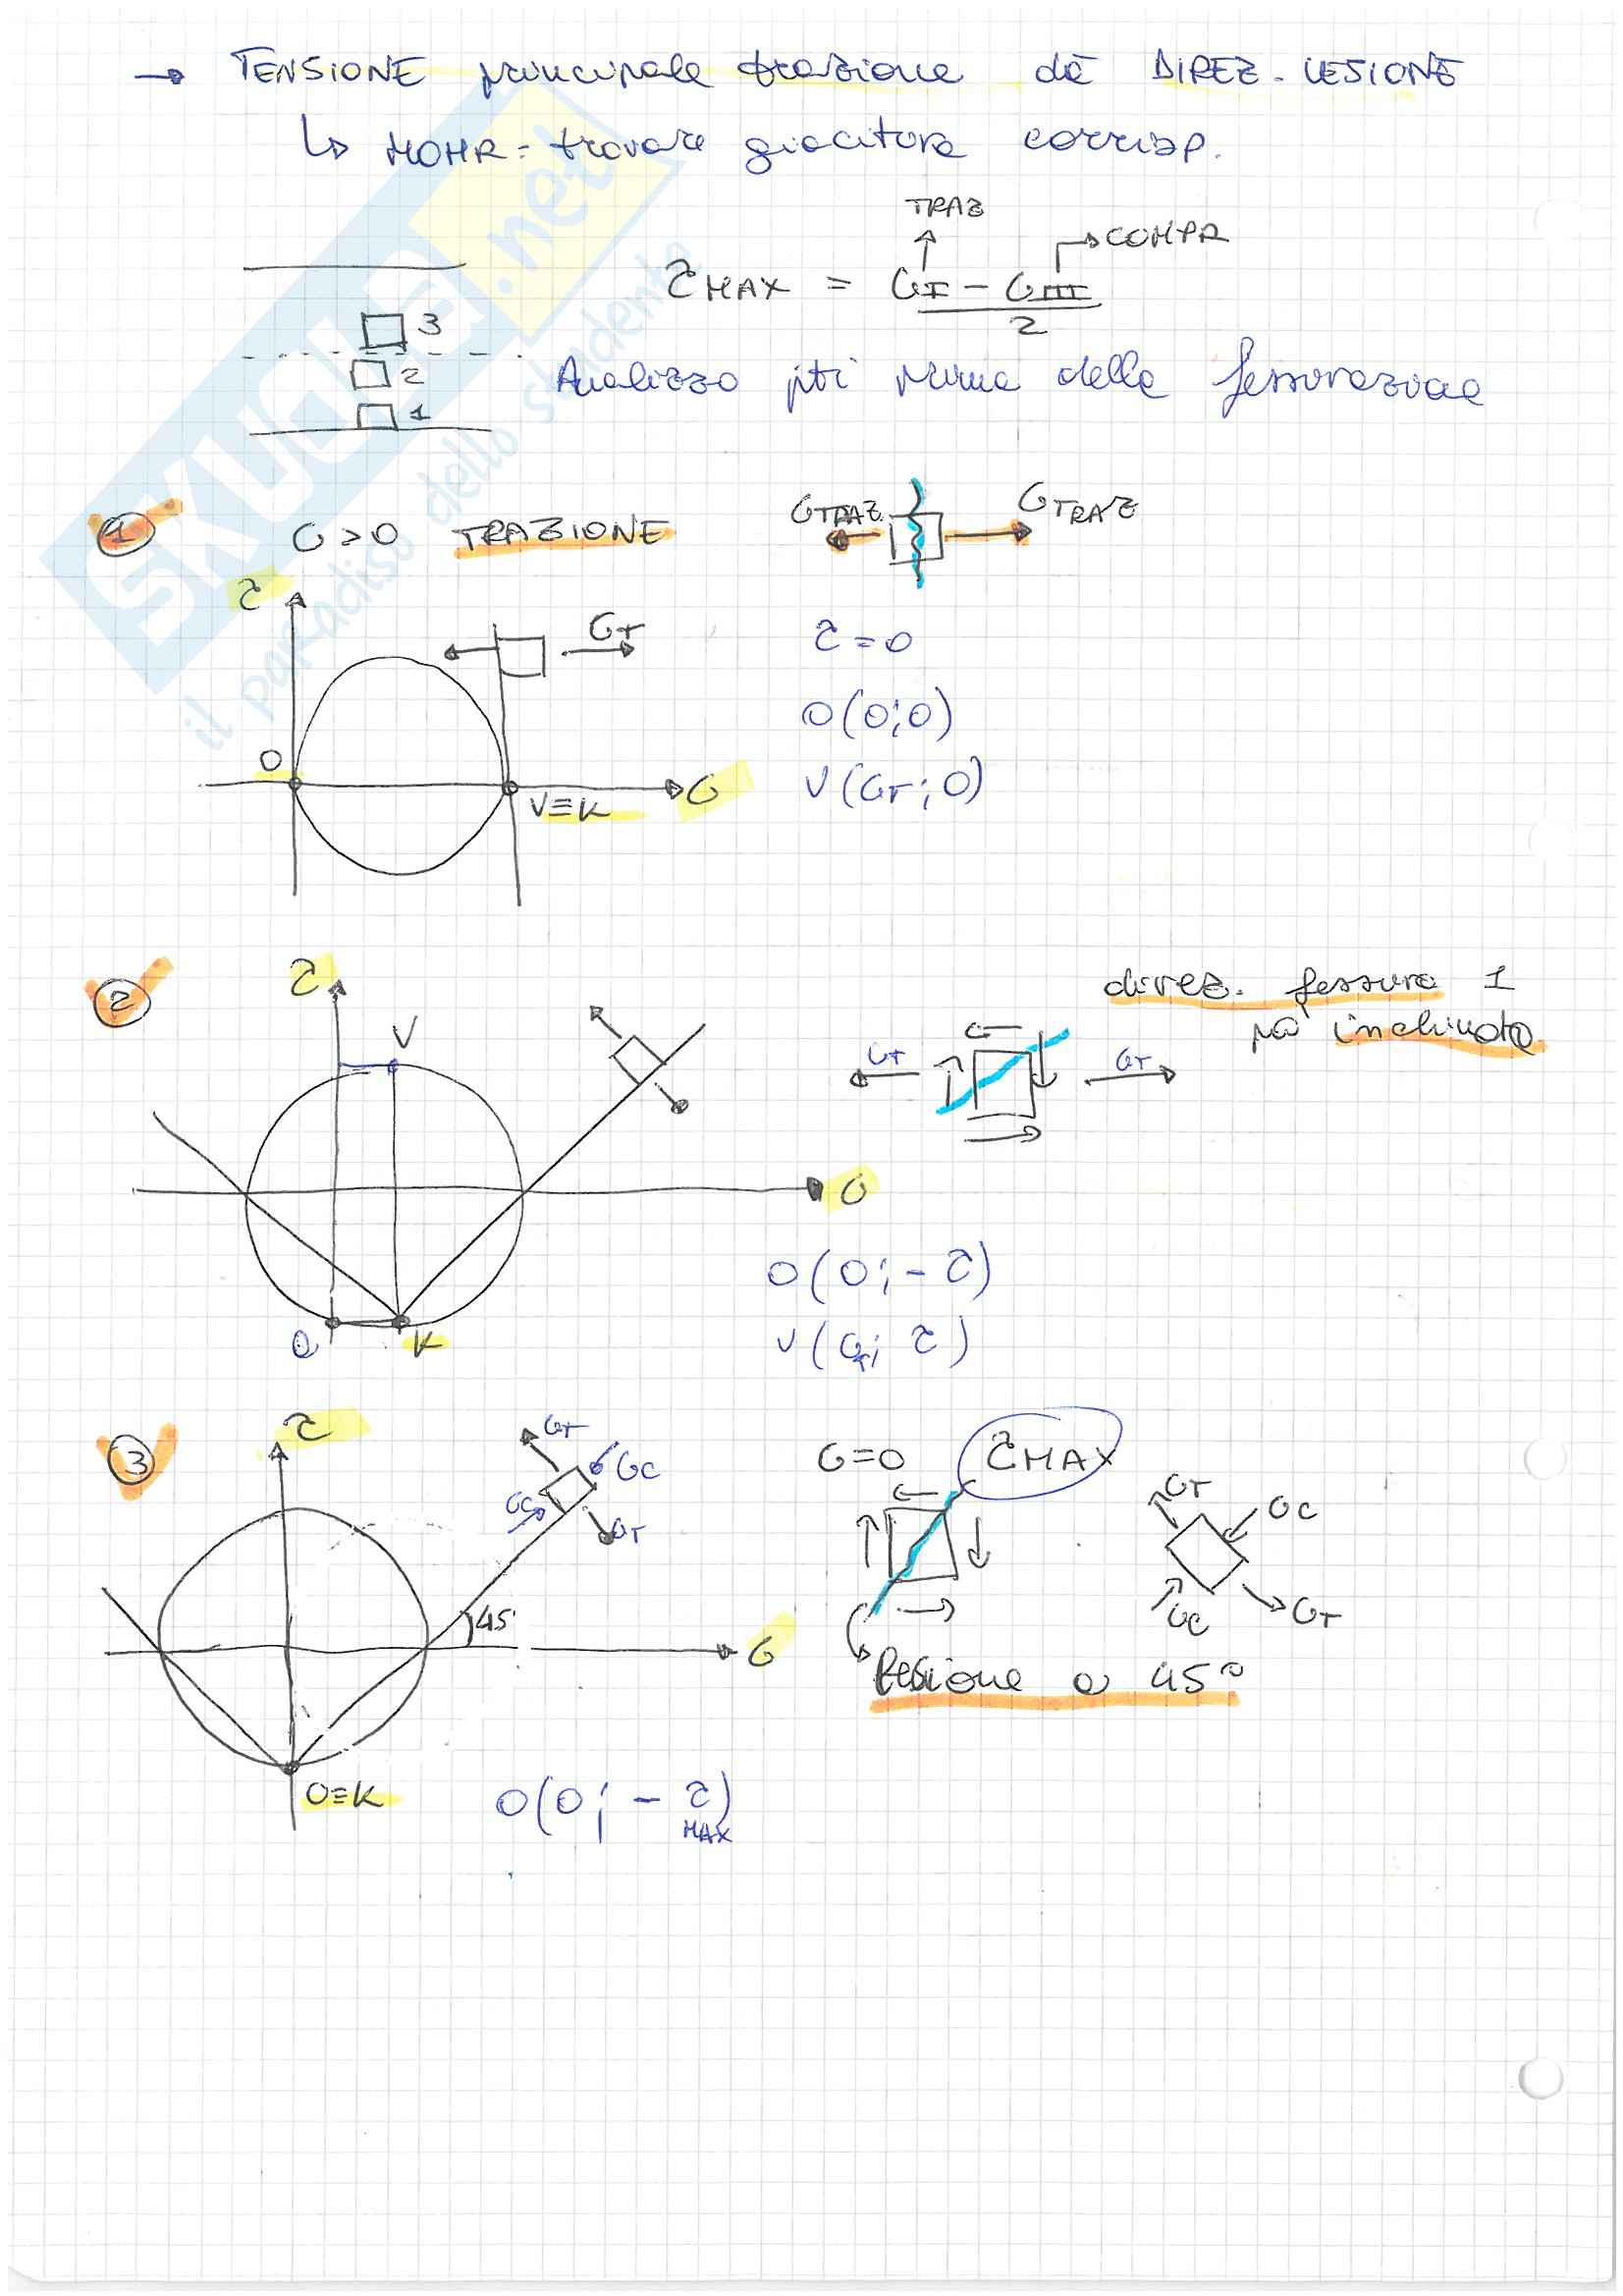 → TENSIONE principale trazione dà DIREZ. LESIONE
↳ MOHR = trovare giacitura corrisp.
TRAZ
COMPR
τ MAX = σI - σIII
2
3
2
1
Analizzo pti prima della fessurazione
1 σ>0 TRAZIONE
σTRAZ σTRAZ
τ
σT
τ=0
O(0;0)
V(σT;0)
O
V≡K
σ
2
τ
V
direz. fessura 1 po' inclinata
σT σT
σ
O(0;-τ)
V(σT; τ)
O K
3
τ
σT
σC
σC
σT
σ=0 τMAX
σT
σC
σC
σT
45°
σ
Lesione a 45°
O≡K
O(0; - τ)
MAX
SKUOLA.net
il paradiso dello studente